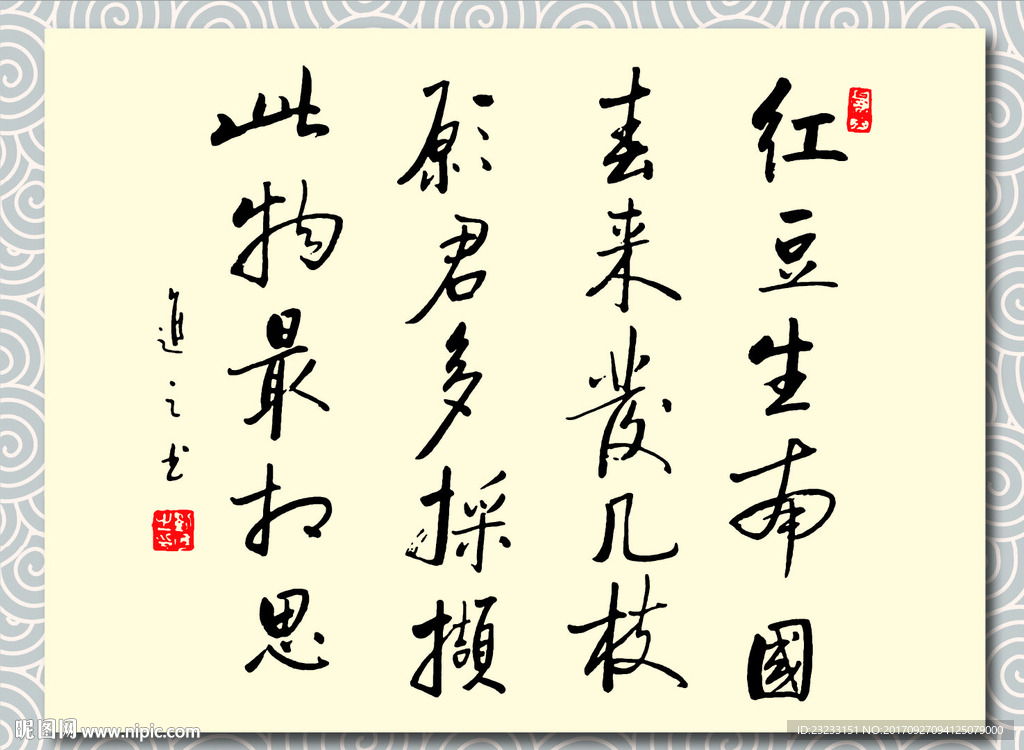 红豆生南國
春来發几枝
願君多採擷
此物最相思
之书
昵图网 www.nipic.com
ID:23233151 NO:20170927094125079000